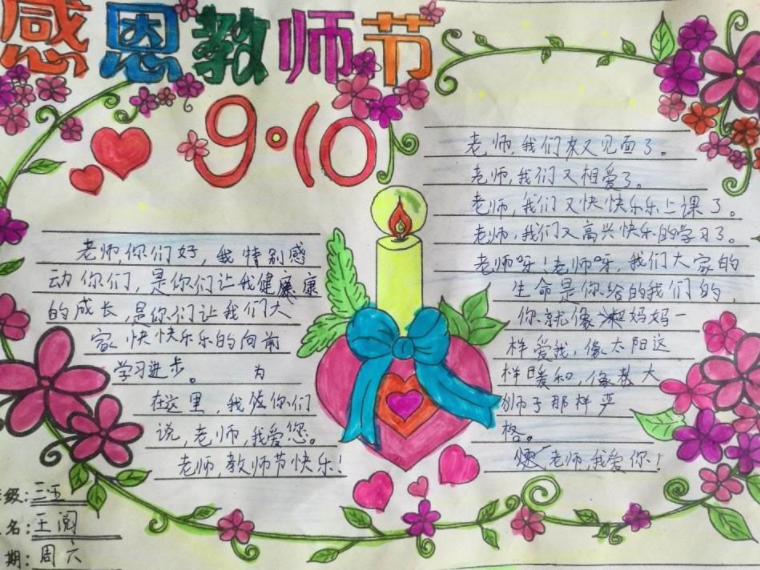 感恩教师节
9·10
老师,你们好,我特别感
动你们,是你们让我健康康
的成长,是你们让我们大
家快快乐乐的向前
学习进步。 为
在这里,我给你们
说,老师,我爱您。
老师,教师节快乐!
级:三五
名:王阅
期:周六
老师,我们来又见面了。
老师,我们又相爱了。
老师,我们又快快乐乐上课了。
老师,我们又高兴快乐的学习了。
老师呀!老师呀,我们大家的
生命是你给的我们的,
你就像妈妈一
样爱我,像太阳这
样暖和,像教大
师于那样严
格。
老师,我爱你!